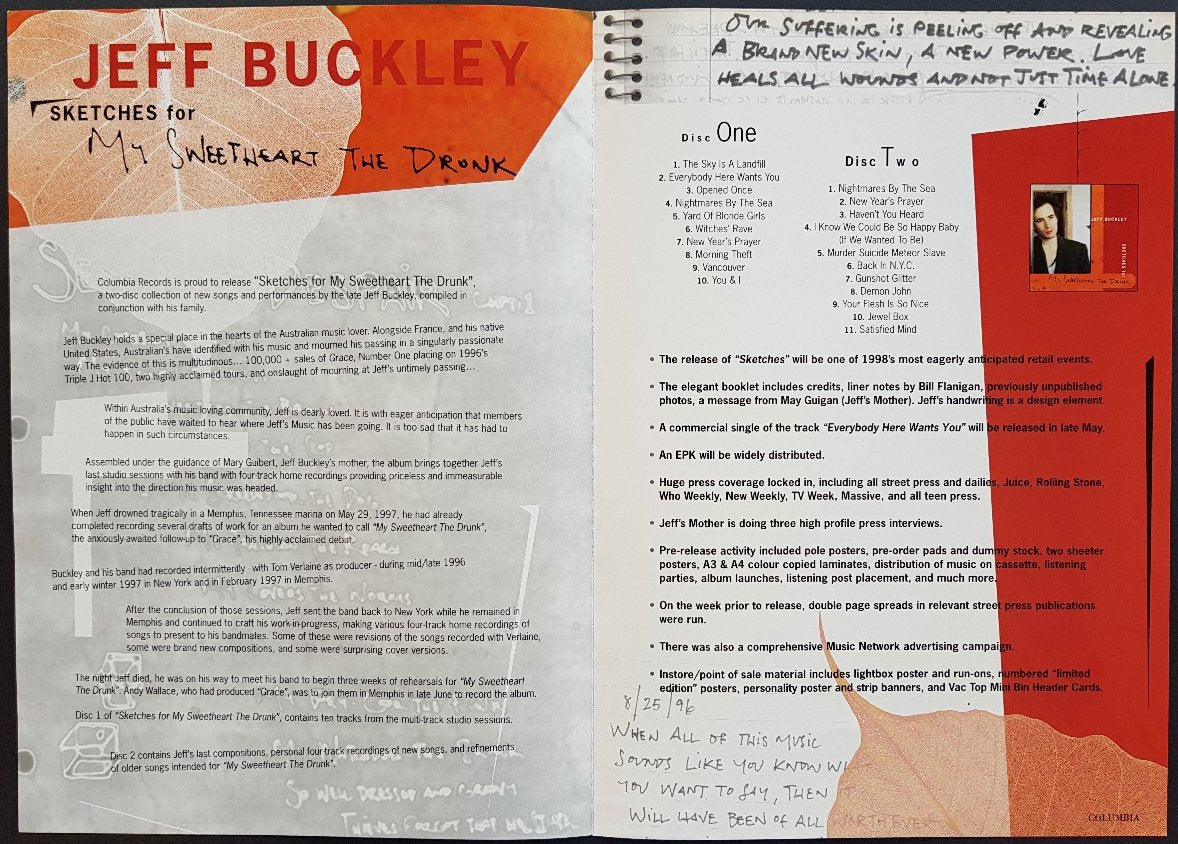 JEFF BUCKLEY
SKETCHES for
MY SWEETHEART THE DRUNK
Columbia Records is proud to release "Sketches for My Sweetheart The Drunk",
a two-disc collection of new songs and performances by the late Jeff Buckley, compiled in
conjunction with his family.
Jeff Buckley holds a special place in the hearts of the Australian music lover. Alongside France, and his native
United States, Australian's have identified with his music and mourned his passing in a singularly passionate
way. The evidence of this is multitudinous... 100,000 + sales of Grace, Number One placing on 1996's
Triple J Hot 100, two highly acclaimed tours, and onslaught of mourning at Jeff's untimely passing...
Within Australia's music loving community, Jeff is dearly loved. It is with eager anticipation that members
of the public have waited to hear where Jeff's Music has been going. It is too sad that it has had to
happen in such circumstances.
Assembled under the guidance of Mary Guibert, Jeff Buckley's mother, the album brings together Jeff's
last studio sessions with his band with four-track home recordings providing priceless and immeasurable
insight into the direction his music was headed.
When Jeff drowned tragically in a Memphis, Tennessee marina on May 29, 1997, he had already
completed recording several drafts of work for an album he wanted to call "My Sweetheart The Drunk",
the anxiously-awaited follow-up to "Grace", his highly-acclaimed debut.
Buckley and his band had recorded intermittently - with Tom Verlaine as producer - during mid/late 1996
and early winter 1997 in New York and in February 1997 in Memphis.
After the conclusion of those sessions, Jeff sent the band back to New York while he remained in
Memphis and continued to craft his work-in-progress, making various four-track home recordings of
songs to present to his bandmates. Some of these were revisions of the songs recorded with Verlaine,
some were brand new compositions, and some were surprising cover versions.
The night Jeff died, he was on his way to meet his band to begin three weeks of rehearsals for "My Sweetheart
The Drunk". Andy Wallace, who had produced "Grace", was to join them in Memphis in late June to record the album.
Disc 1 of "Sketches for My Sweetheart The Drunk", contains ten tracks from the multi-track studio sessions.
Disc 2 contains Jeff's last compositions, personal four-track recordings of new songs, and refinements
of older songs intended for "My Sweetheart The Drunk".
SO WELL DRESSED AND
THIEVES FORGOT THAT
OUR SUFFERING IS PEELING OFF AND REVEALING
A BRAND NEW SKIN, A NEW POWER. LOVE
HEALS ALL WOUNDS AND NOT JUST TIME ALONE.
Disc One
1. The Sky Is A Landfill
2. Everybody Here Wants You
3. Opened Once
4. Nightmares By The Sea
5. Yard Of Blonde Girls
6. Witches' Rave
7. New Year's Prayer
8. Morning Theft
9. Vancouver
10. You & I
Disc Two
1. Nightmares By The Sea
2. New Year's Prayer
3. Haven't You Heard
4. I Know We Could Be So Happy Baby
(If We Wanted To Be)
5. Murder Suicide Meteor Slave
6. Back In N.Y.C.
7. Gunshot Glitter
8. Demon John
9. Your Flesh Is So Nice
10. Jewel Box
11. Satisfied Mind
JEFF BUCKLEY
SKETCHES
MY SWEETHEART THE DRUNK
• The release of "Sketches" will be one of 1998's most eagerly anticipated retail events.
• The elegant booklet includes credits, liner notes by Bill Flanigan, previously unpublished
photos, a message from May Guigan (Jeff's Mother). Jeff's handwriting is a design element.
• A commercial single of the track "Everybody Here Wants You" will be released in late May.
• An EPK will be widely distributed.
• Huge press coverage locked in, including all street press and dailies, Juice, Rolling Stone,
Who Weekly, New Weekly, TV Week, Massive, and all teen press.
• Jeff's Mother is doing three high profile press interviews.
• Pre-release activity included pole posters, pre-order pads and dummy stock, two sheeter
posters, A3 & A4 colour copied laminates, distribution of music on cassette, listening
parties, album launches, listening post placement, and much more.
• On the week prior to release, double page spreads in relevant street press publications
were run.
• There was also a comprehensive Music Network advertising campaign.
• Instore/point of sale material includes lightbox poster and run-ons, numbered "limited
edition" posters, personality poster and strip banners, and Vac Top Mini Bin Header Cards.
8/25/96
WHEN ALL OF THIS MUSIC
SOUNDS LIKE YOU KNOW
YOU WANT TO SAY, THEN
WILL HAVE BEEN OF ALL WORTH EVER
COLUMBIA